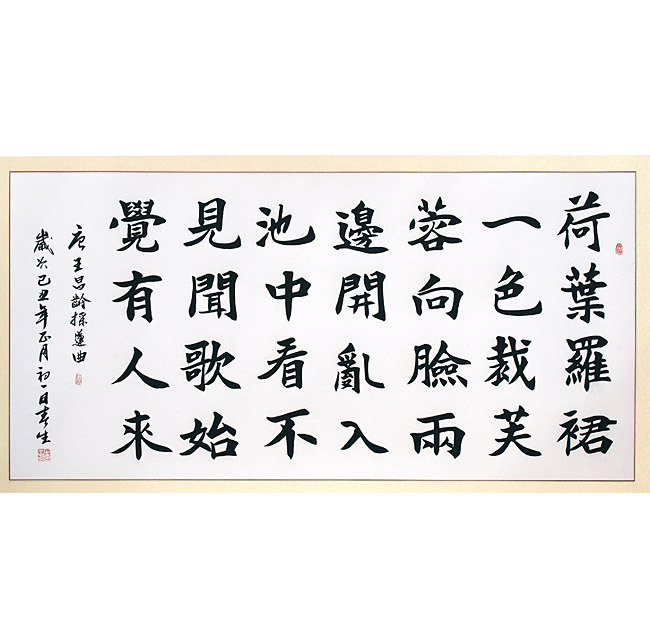 荷葉羅裙
一色裁芙
蓉向臉兩
邊開亂入
池中看不
見聞歌始
覺有人來
唐王昌齡採蓮曲
歲次己丑年正月初一日春生